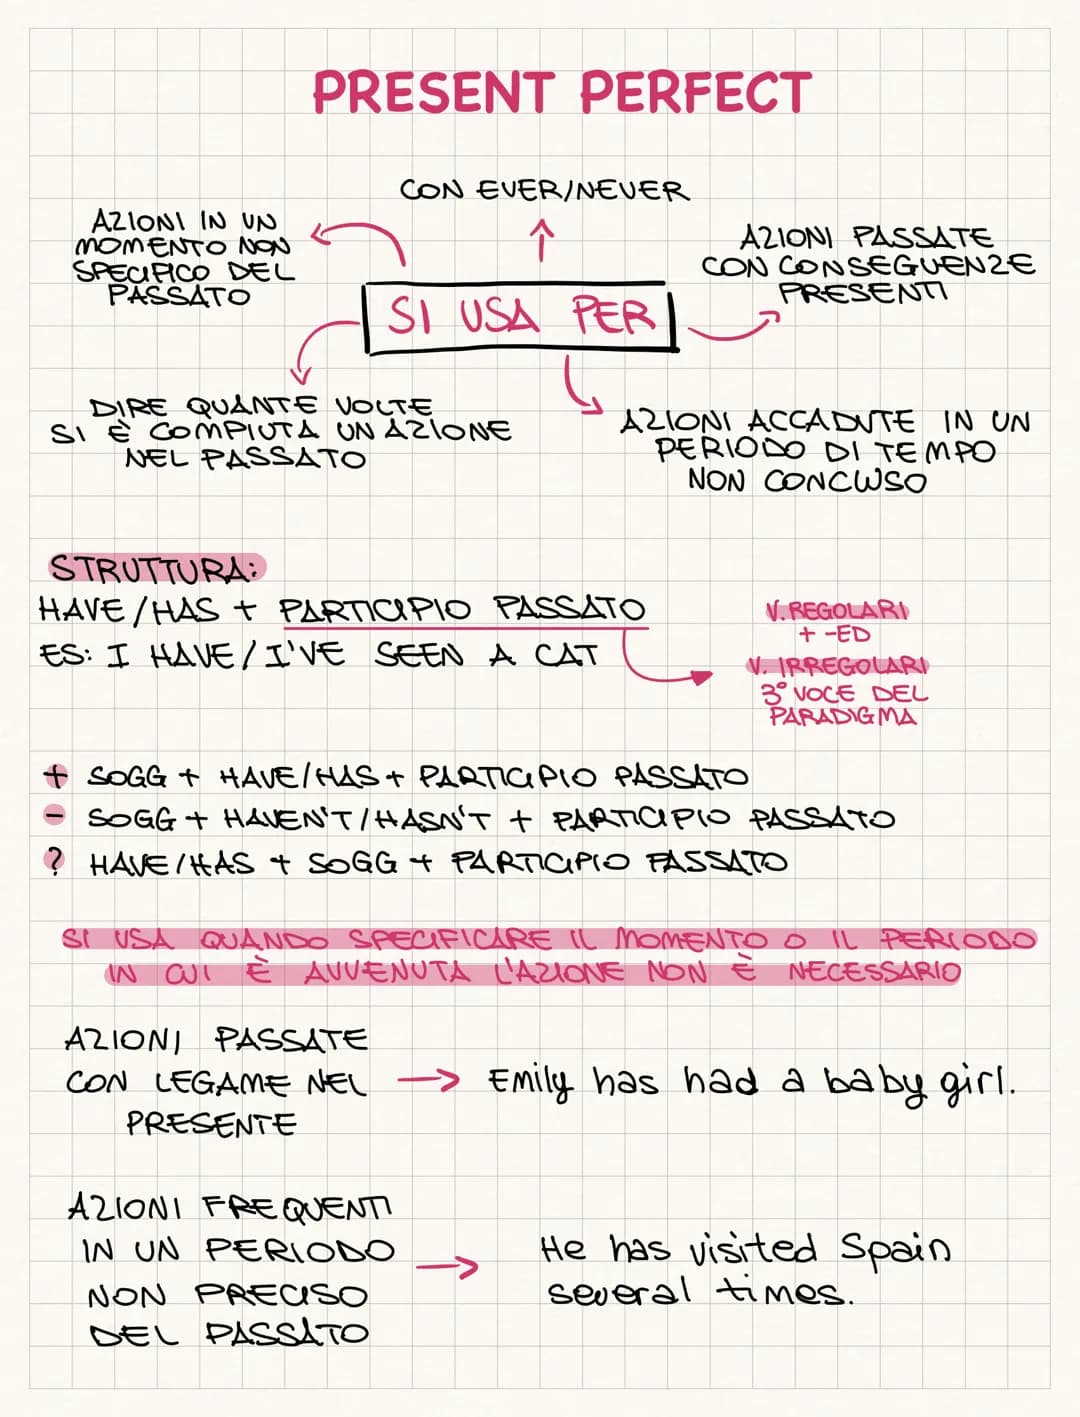 PRESENT PERFECT
CON EVER/NEVER
AZIONI IN UN
MOMENTO NON
SPECIFICO DEL
PASSATO
AZIONI PASSATE
CON CONSEGUENZE
PRESENTI
SI USA PER
DIRE QUANTE VOLTE
SI È COMPIUTA UN AZIONE
NEL PASSATO
AZIONI ACCADUTE IN UN
PERIODO DI TEMPO
NON CONCLUSO
STRUTTURA:
HAVE/HAS + PARTICIPIO PASSATO
ES: I HAVE/I'VE SEEN A CAT
V. REGOLARI
+ -ED
V. IRREGOLARI
3° VOCE DEL
PARADIGMA
+ SOGG + HAVE/HAS + PARTICIPIO PASSATO
- SOGG + HAVEN'T/HASN'T + PARTICIPIO PASSATO
? HAVE/HAS + SOGG + PARTICIPIO PASSATO
SI USA QUANDO SPECIFICARE IL MOMENTO O IL PERIODO
IN CUI È AVVENUTA L'AZIONE NON È NECESSARIO
AZIONI PASSATE
CON LEGAME NEL
PRESENTE
Emily has had a baby girl.
AZIONI FREQUENTI
IN UN PERIODO
NON PRECISO
DEL PASSATO
He has visited Spain
several times.